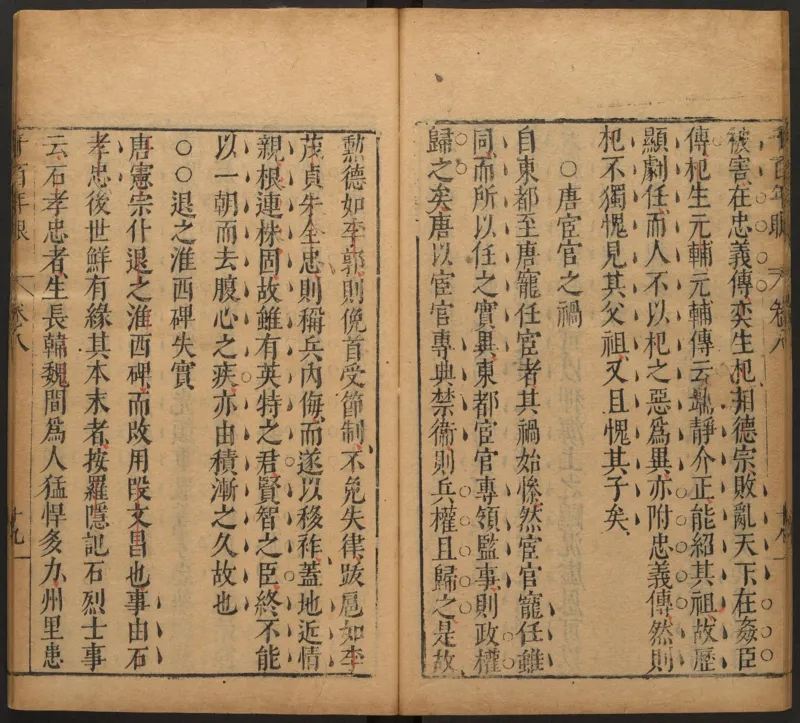 被害在忠義傳奕生杞相德宗敗亂天下在姦臣
傳杞生元輔元輔傳云端靜介正能紹其祖故歷
顯劇任而人不以杞之惡爲異亦附忠義傳然則
杞不獨愧見其父祖又且愧其子矣
○唐宦官之禍
自東都至唐寵任宦者其禍始慘然宦官寵任雖
同而所以任之實異東都宦官專領監事則政權
歸之矣唐以宦官專典禁衛則兵權且歸之是故
勲德如李郭則俛首受節制不免失律跋扈如李
茂貞朱全忠則稱兵內侮而遂以移祚蓋地近情
親根連株固故雖有英特之君賢智之臣終不能
以一朝而去腹心之疾亦由積漸之久故也
○○退之淮西碑失實
唐憲宗仆退之淮西碑而改用段文昌也事由石
孝忠後世鮮有緣其本末者按羅隱記石烈士事
云石孝忠者生長韓魏間爲人猛悍多力州里患
卷八
十九